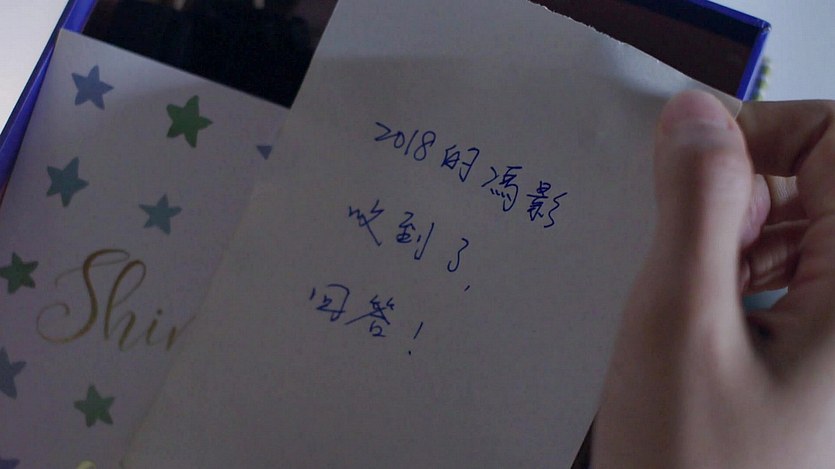 2018的馮影
收到了，
回答！
Shin